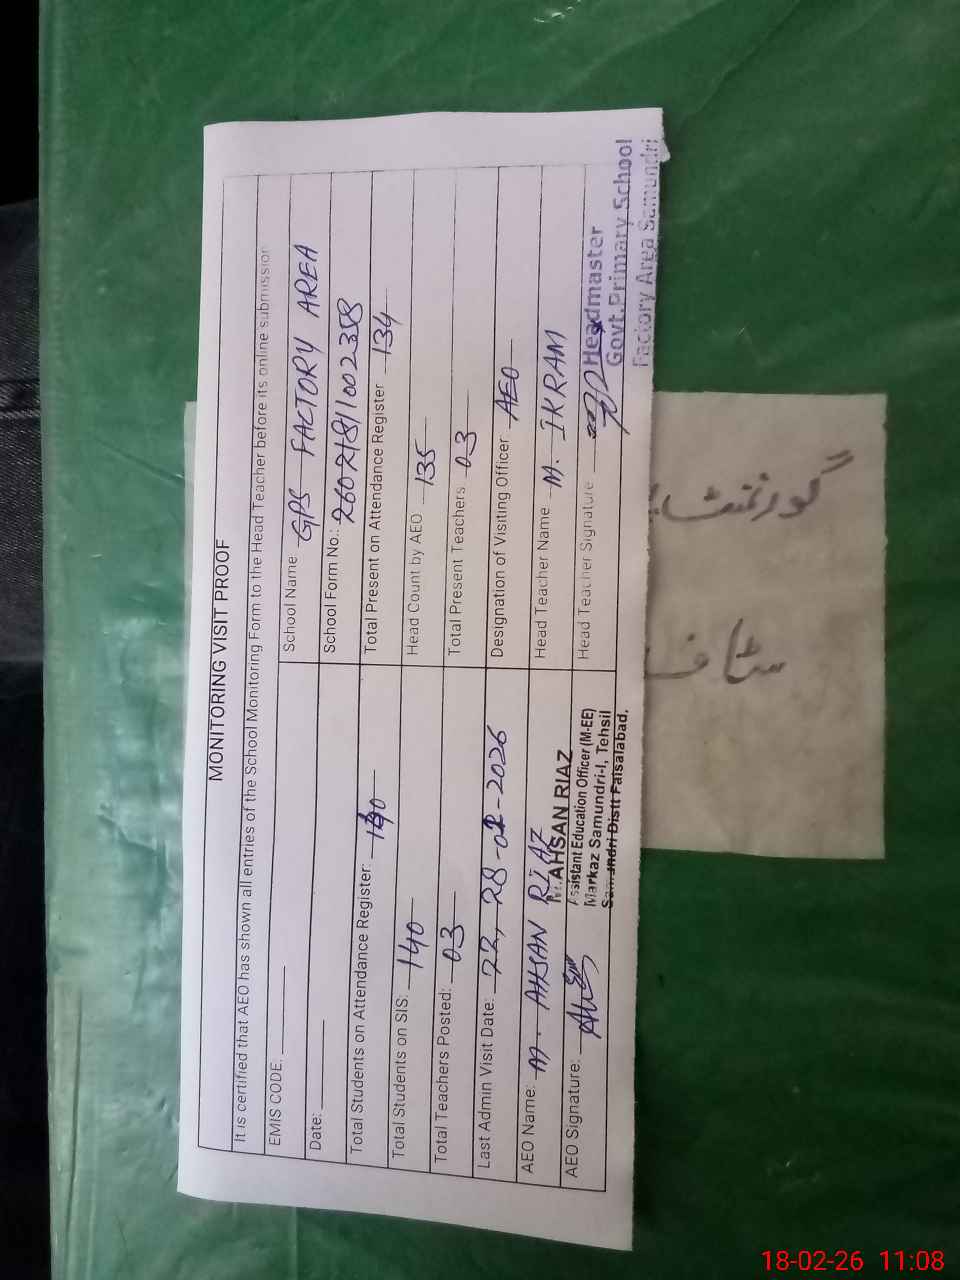 MONITORING VISIT PROOF
It is certified that AEO has shown all entries of the School Monitoring Form to the Head Teacher before its online submission
EMIS CODE:
School Name GPS FACTORY AREA
Date:
School Form No.: 260218/1002358
Total Students on Attendance Register: 140
Total Present on Attendance Register 134
Total Students on SIS: 140
Head Count by AEO 135
Total Teachers Posted: 03
Total Present Teachers 03
Last Admin Visit Date: 28-01-2026
Designation of Visiting Officer AEO
AEO Name: M. AHSAN RIAZ
Head Teacher Name M. IKRAM
AEO Signature:
Head Teacher Signature
M. AHSAN RIAZ
Assistant Education Officer (M-EE)
Markaz Samundri-I, Tehsil
Samundri Distt Faisalabad.
Headmaster
Govt. Primary School
Factory Area Samundri
گورنمنٹ
سٹاف
18-02-26 11:08